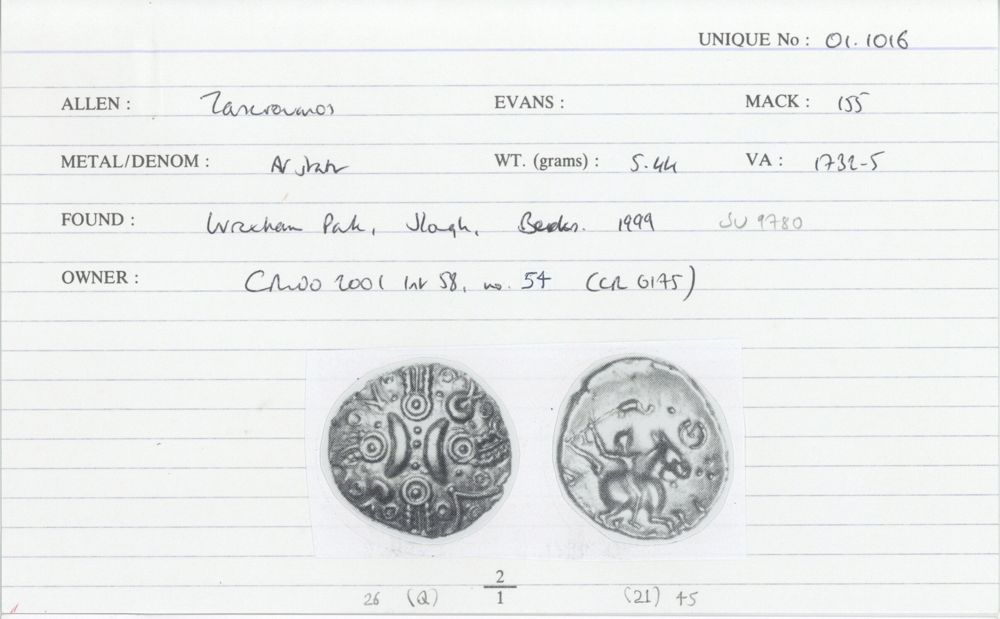 UNIQUE No : 01.1016
ALLEN : Tasciovanos EVANS : MACK : 155
METAL/DENOM : AV stater WT. (grams) : 5.44 VA : 1732-5
FOUND : Wrexham Park, Slough, Berks. 1999 SU 9780
OWNER : 2001 Int 58, no. 54 (CR 6175)
2
26 (Q) 1 (21) 45